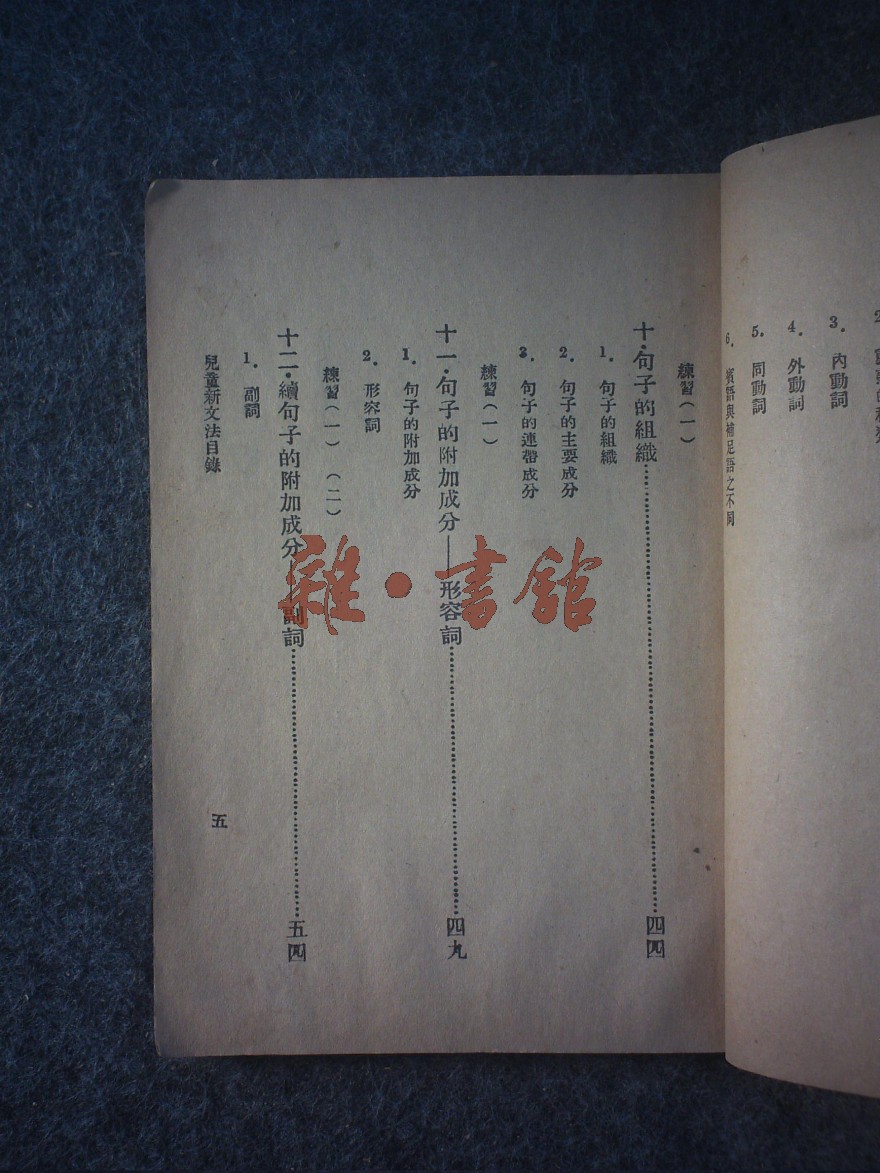 3. 內動詞
4. 外動詞
5. 同動詞
6. 賓語與補足語之不同
練習(一)
十·句子的組織……四四
1. 句子的組織
2. 句子的主要成分
3. 句子的連帶成分
練習(一)
十一·句子的附加成分——形容詞……四九
1. 句子的附加成分
2. 形容詞
練習(一)(二)
十二·續句子的附加成分——副詞……五四
1. 副詞
兒童新文法目錄
五
雜·書館